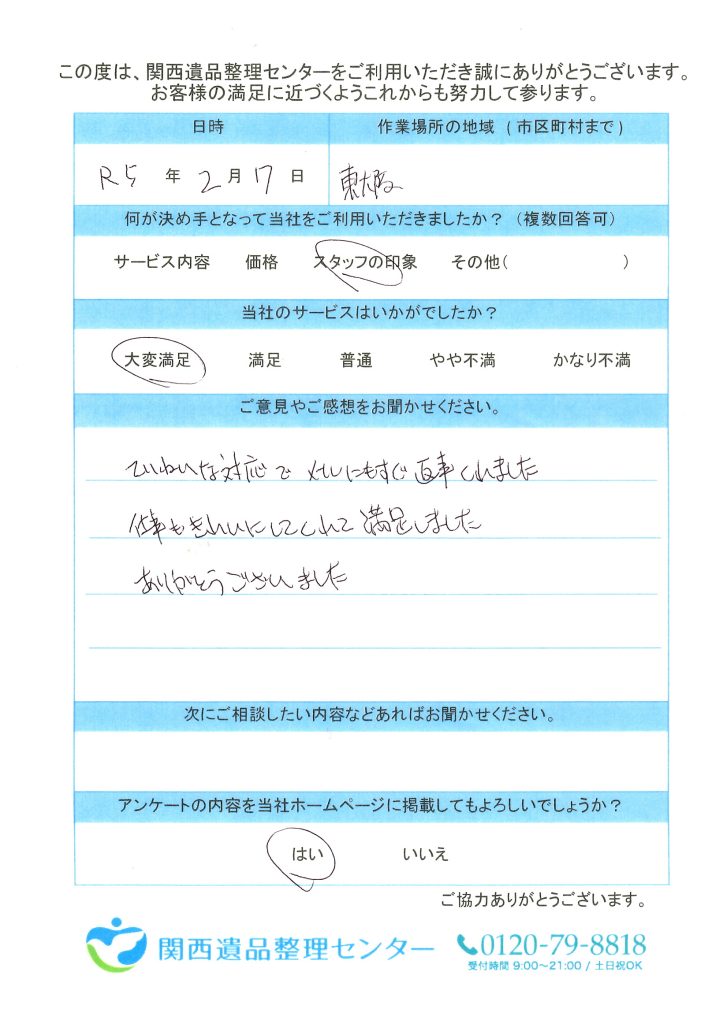 この度は、関西遺品整理センターをご利用いただき誠にありがとうございます。
お客様の満足に近づくようこれからも努力して参ります。
日時 作業場所の地域 (市区町村まで)
R5 年 2 月 17 日 東大阪
何が決め手となって当社をご利用いただきましたか？ (複数回答可)
サービス内容 価格 スタッフの印象 その他( )
当社のサービスはいかがでしたか？
大変満足 満足 普通 やや不満 かなり不満
ご意見やご感想をお聞かせください。
ていねいな対応で メールにもすぐ返事くれました
仕事もきれいにしてくれて満足しました
ありがとうございました
次にご相談したい内容などあればお聞かせください。
アンケートの内容を当社ホームページに掲載してもよろしいでしょうか？
はい いいえ
ご協力ありがとうございます。
関西遺品整理センター 0120-79-8818
受付時間 9:00～21:00 / 土日祝OK